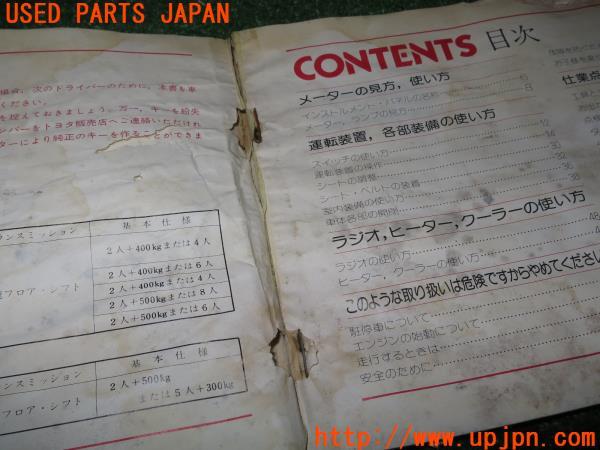 USED PARTS JAPAN
場合、次のドライバーのために、本書を車
ください。
を控えておきましょう。万一、キーを紛失
ンバーをトヨタ販売店へご連絡いただけれ
ターにより純正のキーを作ることができま
ランスミッション
基本仕様
2人+400kgまたは4人
フロア・シフト
2人+400kgまたは6人
2人+400kgまたは4人
2人+500kgまたは8人
2人+500kgまたは6人
ランスミッション
基本仕様
フロア・シフト
2人+500kg
または5人+300kg
CONTENTS 目次
メーターの見方,使い方
インストルメント・パネルの名称
メーター、ランプの見方 8
運転装置,各部装備の使い方
スイッチの使い方 12
運転装置の操作
シートの調整 30
シート・ベルトの装着 32
室内装備の使い方 36
車体各部の開閉 38
ラジオ,ヒーター,クーラーの使い方
ラジオの使い方 48
ヒーター・クーラーの使い方
このような取り扱いは危険ですからやめてください
駐停車について
エンジンの始動について
走行するときは
安全のために
仕業点
http://www.upjpn.com